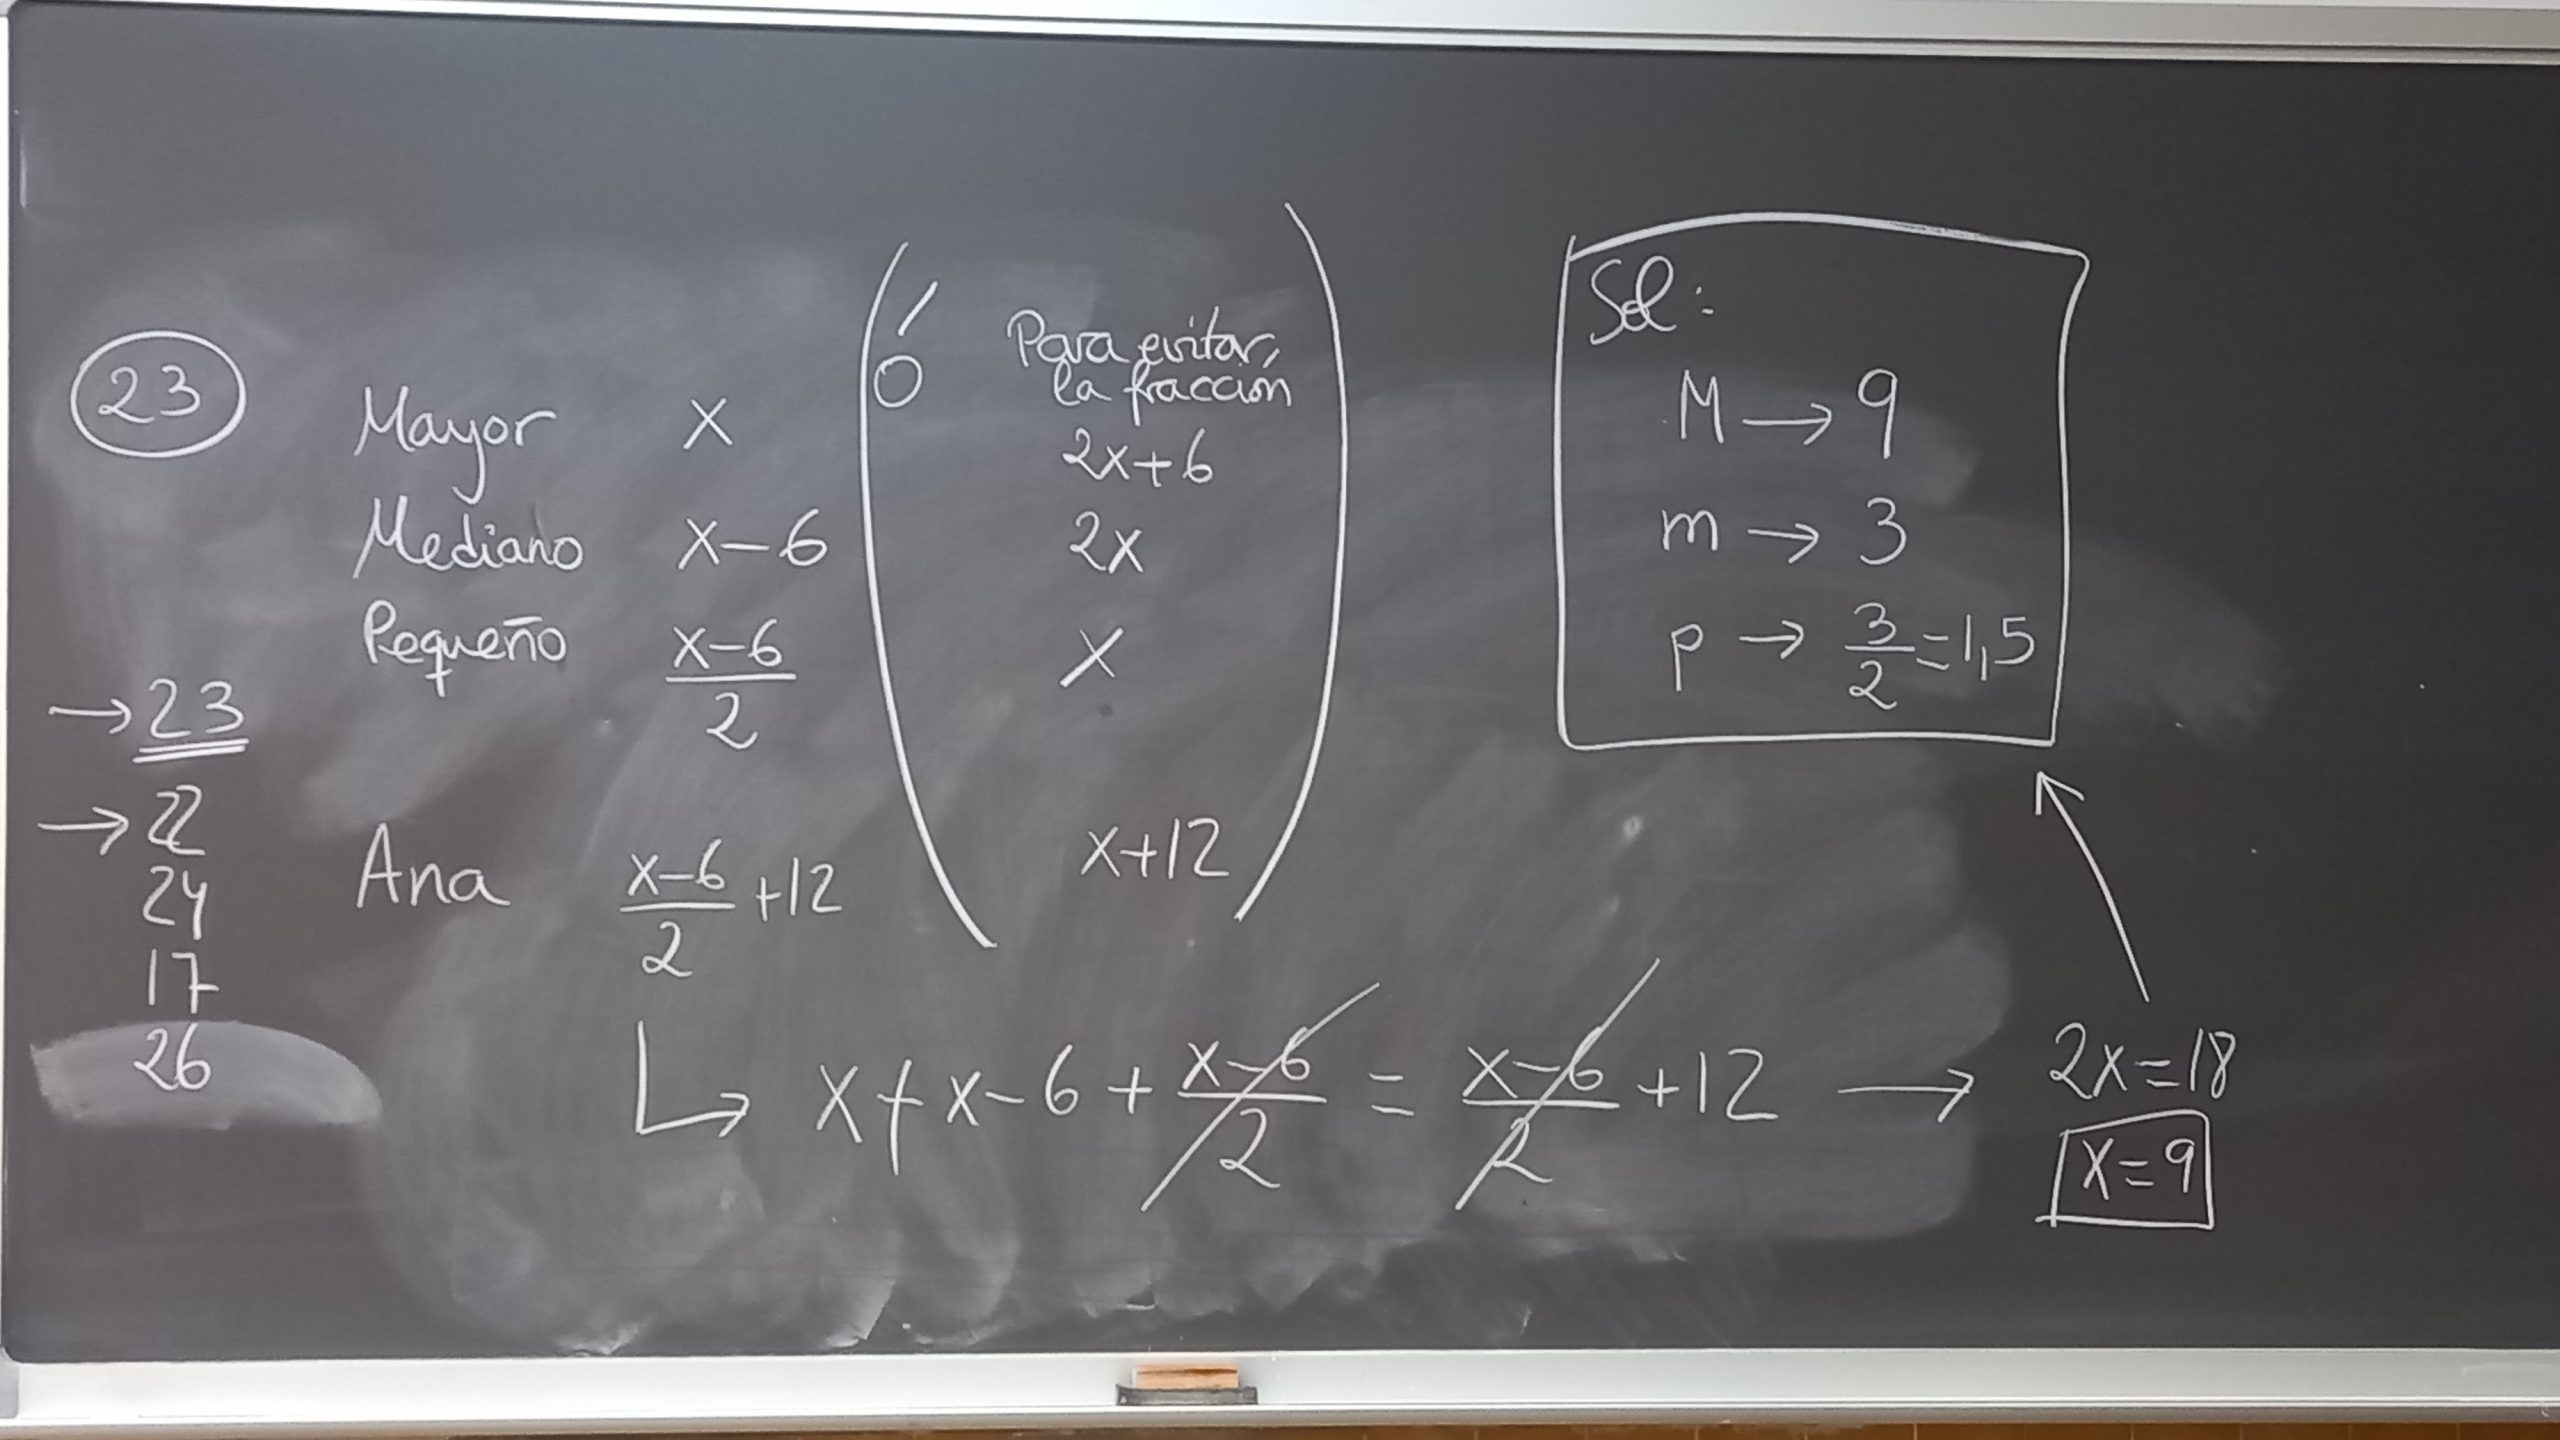 23
Mayor x
Mediano x-6
Pequeño (x-6)/2
Ana (x-6)/2 +12
ó Para evitar
la fracción
2x+6
2x
x
x+12
→ 23
→ 22
24
17
26
x + x-6 + (x-6)/2 = (x-6)/2 +12 → 2x=18
x=9
Sol:
M → 9
m → 3
p → 3/2 = 1,5